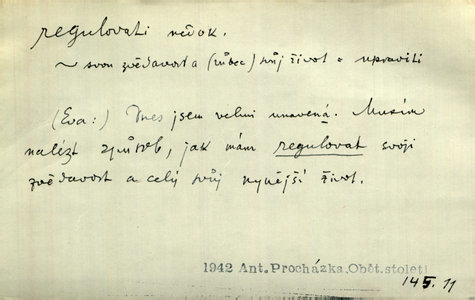 regulovati nědok.
~ svou zvědavost a (vůbec) svůj život = upraviti
(Eva:) Dnes jsem velmi unavená. Musím
nalézt způsob, jak mám regulovat svoji
zvědavost a celý svůj nynější život.
1942 Ant. Procházka. Obět. století
145. 11